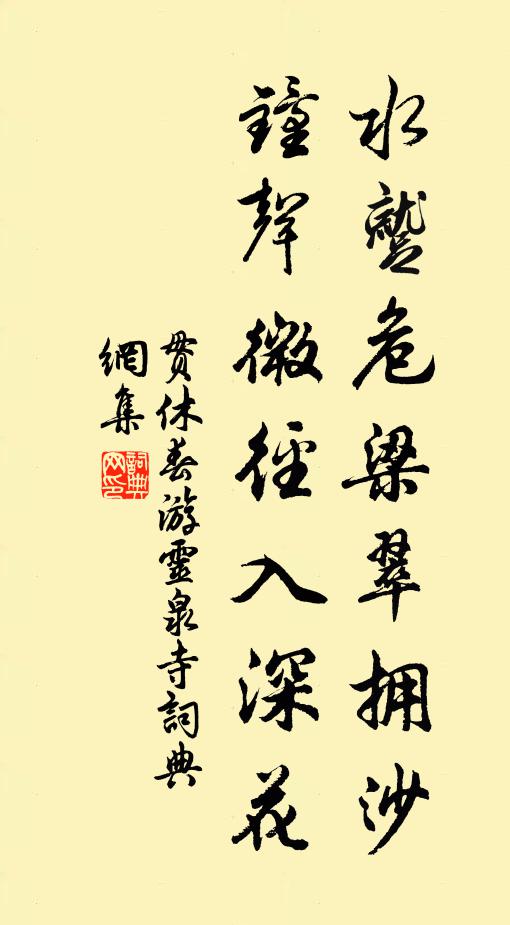 水蹙危梁翠拥沙
鐘聲微徑入深花
貫休春游靈泉寺詞典
網集
詞典網印